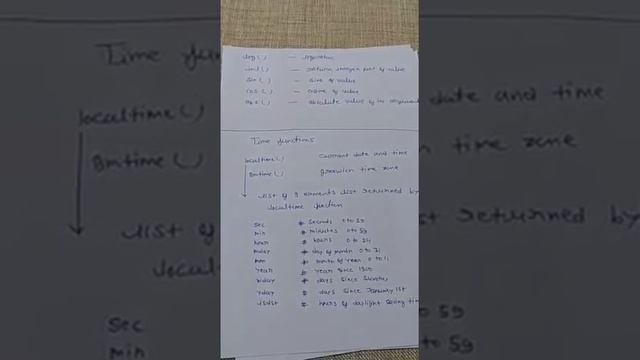 log() — logarithm
int() — return integer part of value
sin() — sine of value
cos() — cosine of value
abs() — absolute value of
Time functions
localtime() current date and time
gmtime() greenwich time zone
list of 9 elements list returned by
localtime function
sec # seconds 0 to 59
min # minutes 0 to 59
hour # hours 0 to 24
mday # day of month 0 to 31
mon # month of year 0 to 11
year # year since 1900
wday # days since Sunday
yday # days since January 1st
isdst # hours of daylight saving time